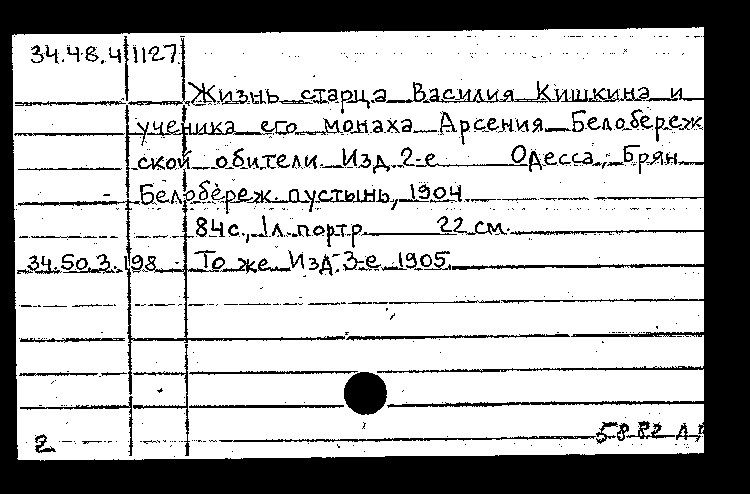 34.48.4 1127
Жизнь старца Василия Кишкина и
ученика его монаха Арсения Белобереж
ской обители. Изд. 2-е Одесса, Брян.
- Белобереж. пустынь, 1904
84с., 1л. портр. 22 см.
34.50.3.198 - То же. Изд. 3-е 1905.
2 5882